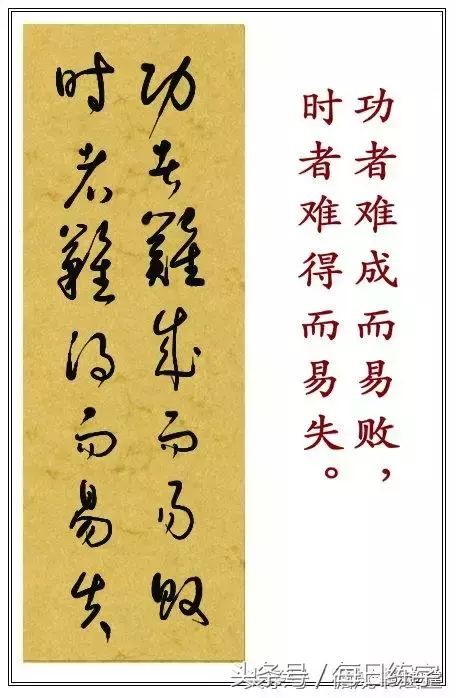 功者難成而易败
时者難得而易失
功者难成而易败，
时者难得而易失。
头条号／每日练字